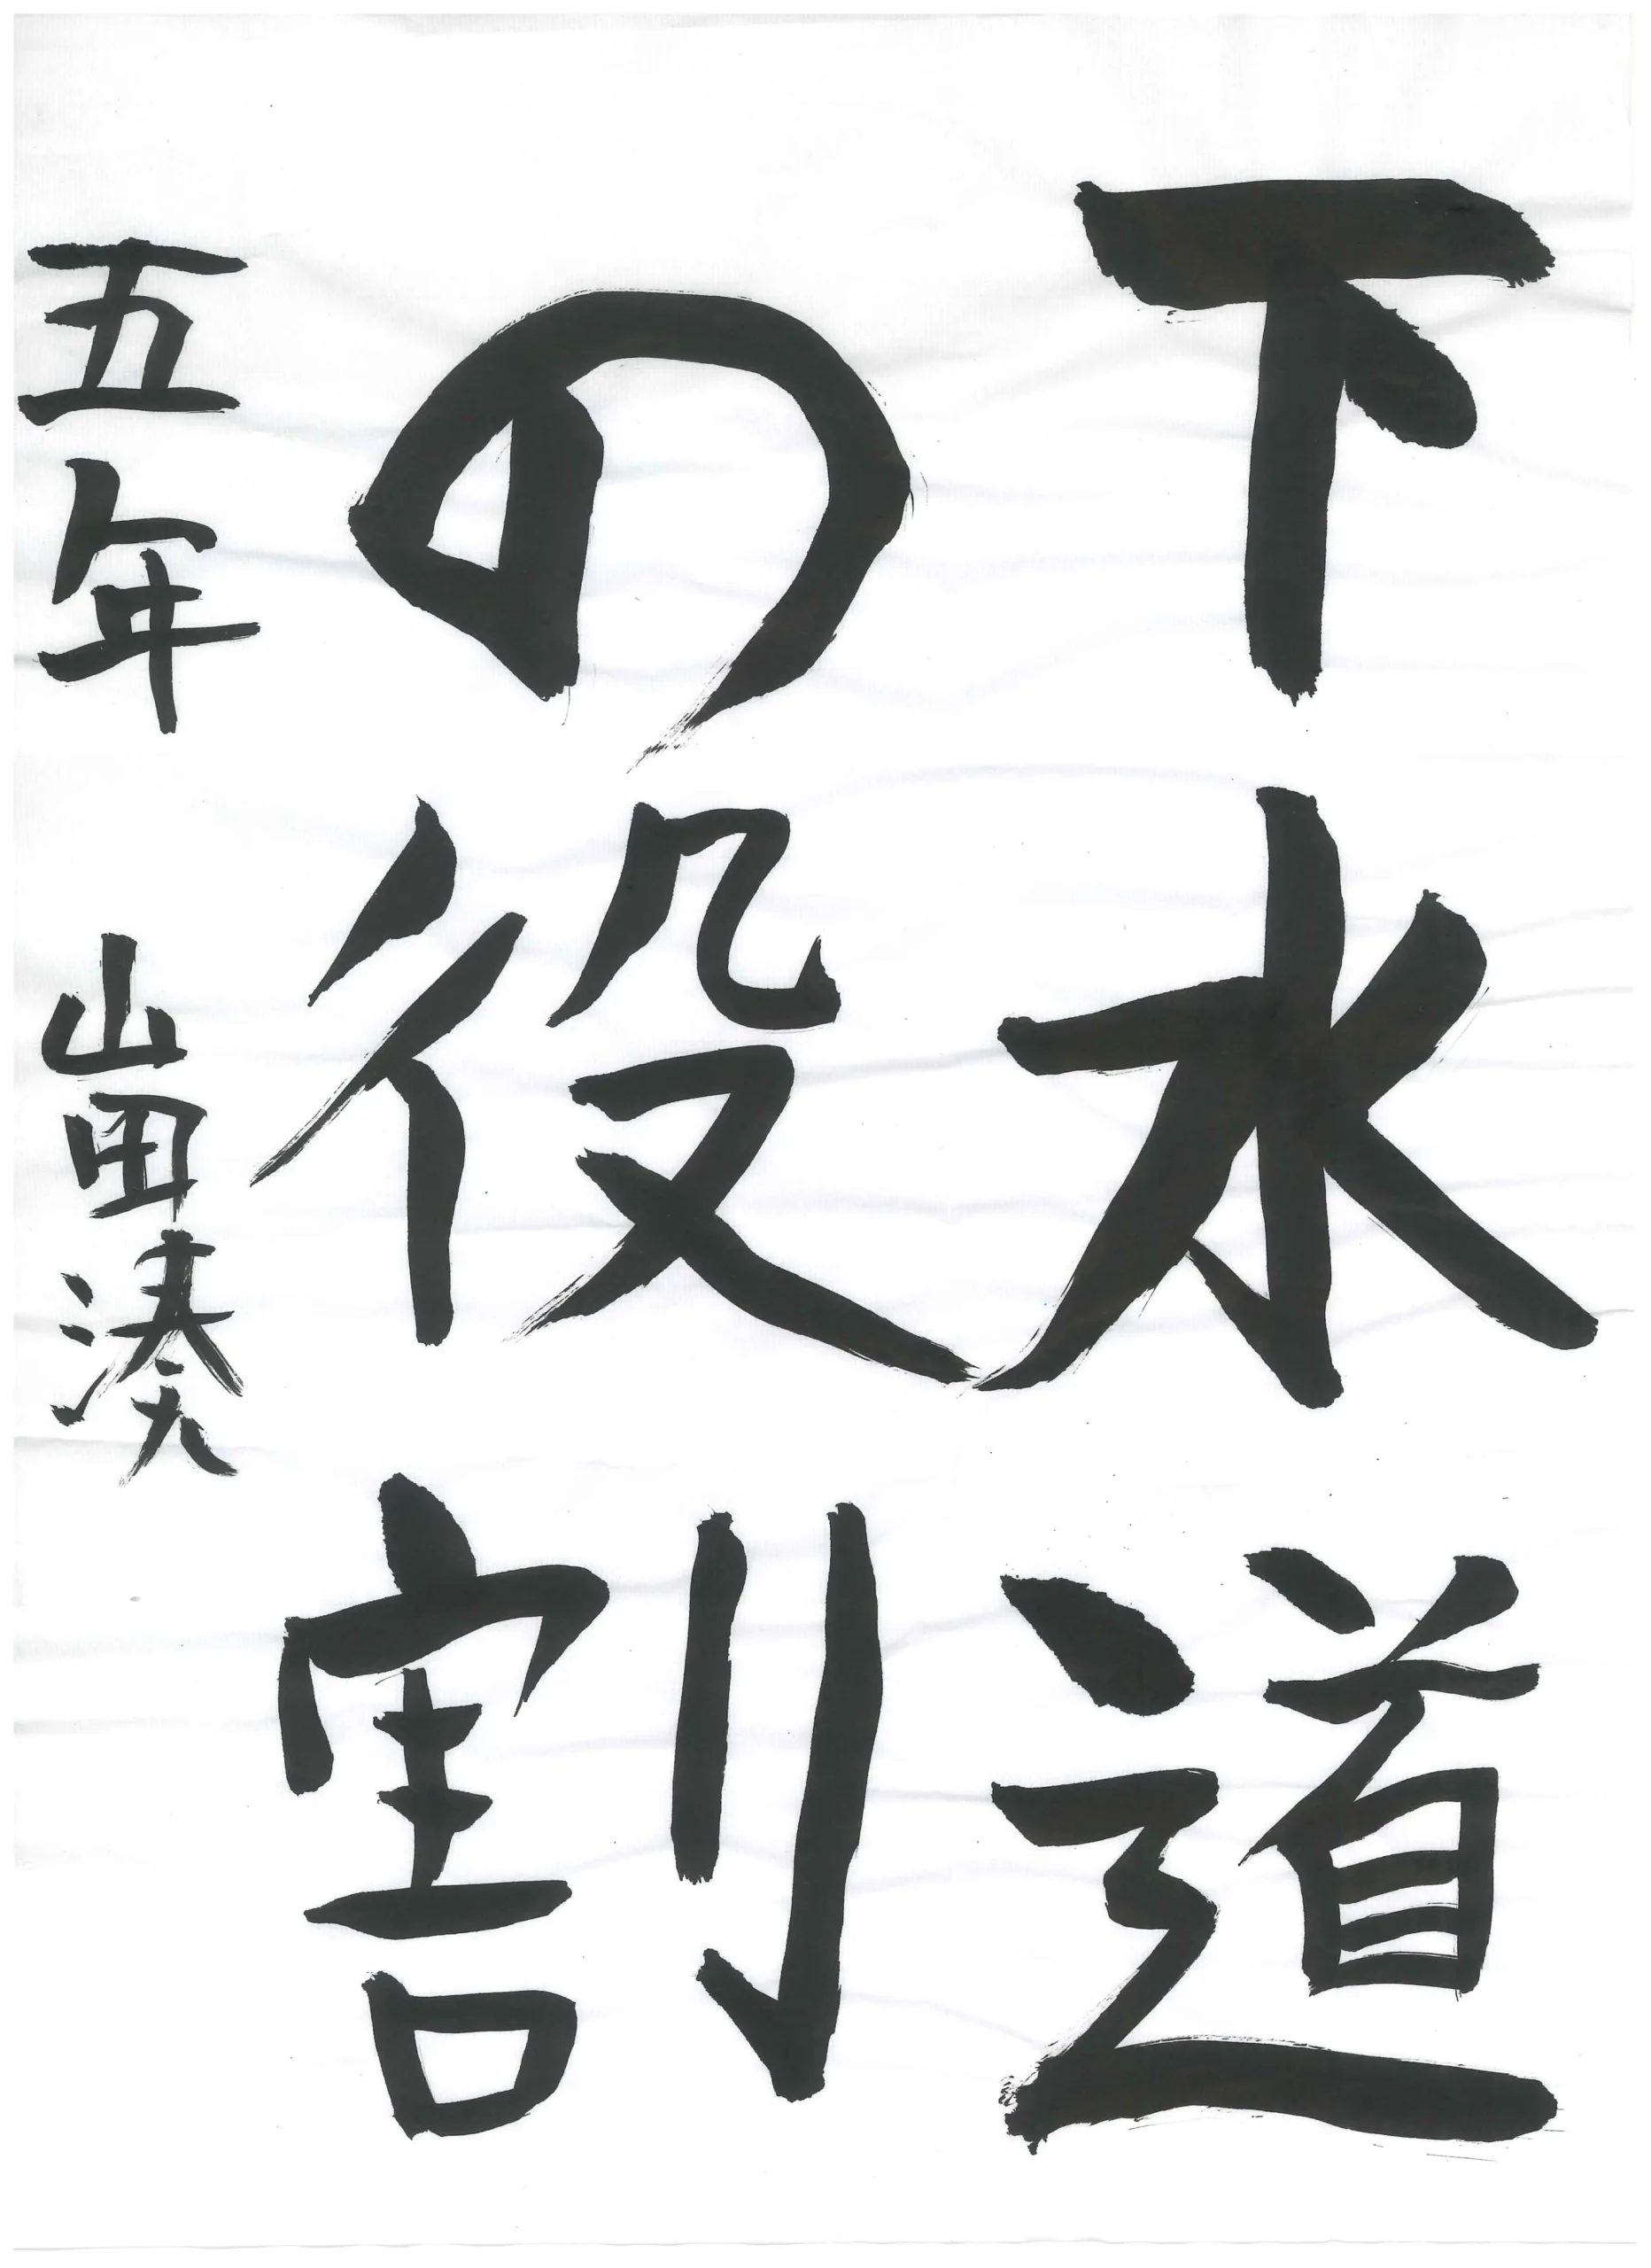 下水道
の役割
五年 山田湊